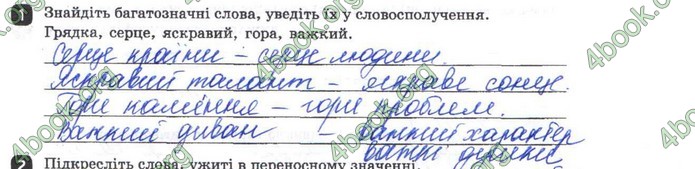 1 Знайдіть багатозначні слова, уведіть їх у словосполучення.
Грядка, серце, яскравий, гора, важкий.
Серце країни – серце людини.
Яскравий талант – яскраве сонце.
Гори каміння – гори проблем.
Важкий диван – важкий характер
важкі думки
2 Підкресліть слова, ужиті в переносному значенні.
4book.org